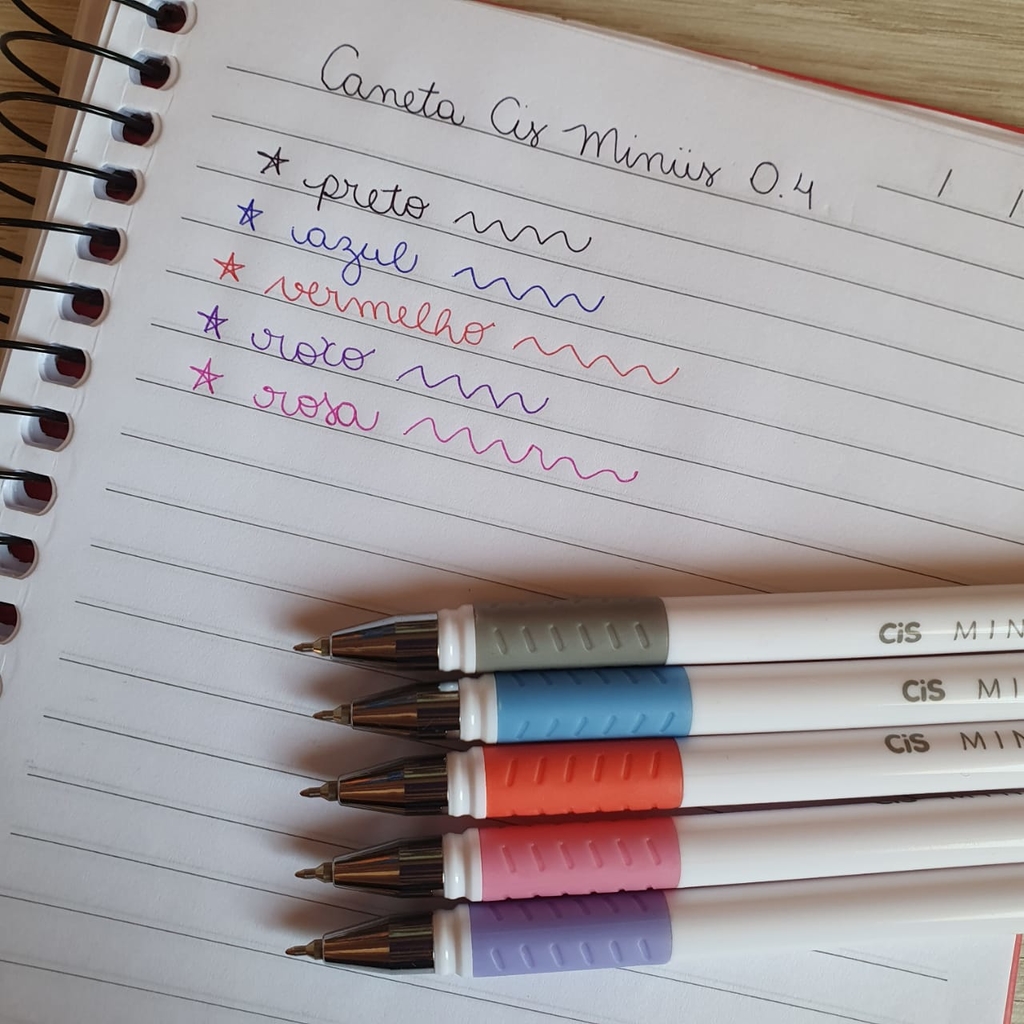 Caneta Cis Miniis 0.4
/ /
preto
azul
vermelho
roxo
rosa
CiS MIN
CiS MI
CiS MIN